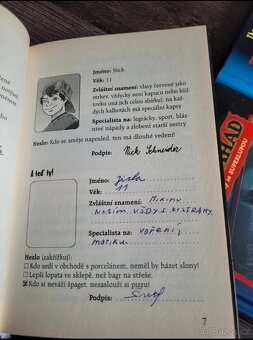 Jméno: Nick
Věk: 11
Zvláštní znamení: vlasy červené jako
mrkev. vždycky nosí kapuci nebo kšil-
tovku (má jich celou sbírku). na kaž-
dých kalhotách má speciální kapsy
Specialista na: legrácky, sport. bláz-
nivé nápady a zlobení starší sestry
Heslo: Kdo se směje naposled. ten má dlouhé vedení!
Podpis: Nick Schneider
A teď ty!
Jméno:
Věk: 11
Zvláštní znamení: Mikinu
nosím vždy s
Specialista na: vaření,
matiku.
Heslo (zakřížkuj):
Kdo sedí v obchodě s porcelánem. neměl by házet slony!
Lepší lopata ve sklepě. než bagr na střeše.
Kdo si neváží špaget. nezaslouží si pizzu!
Podpis:
7